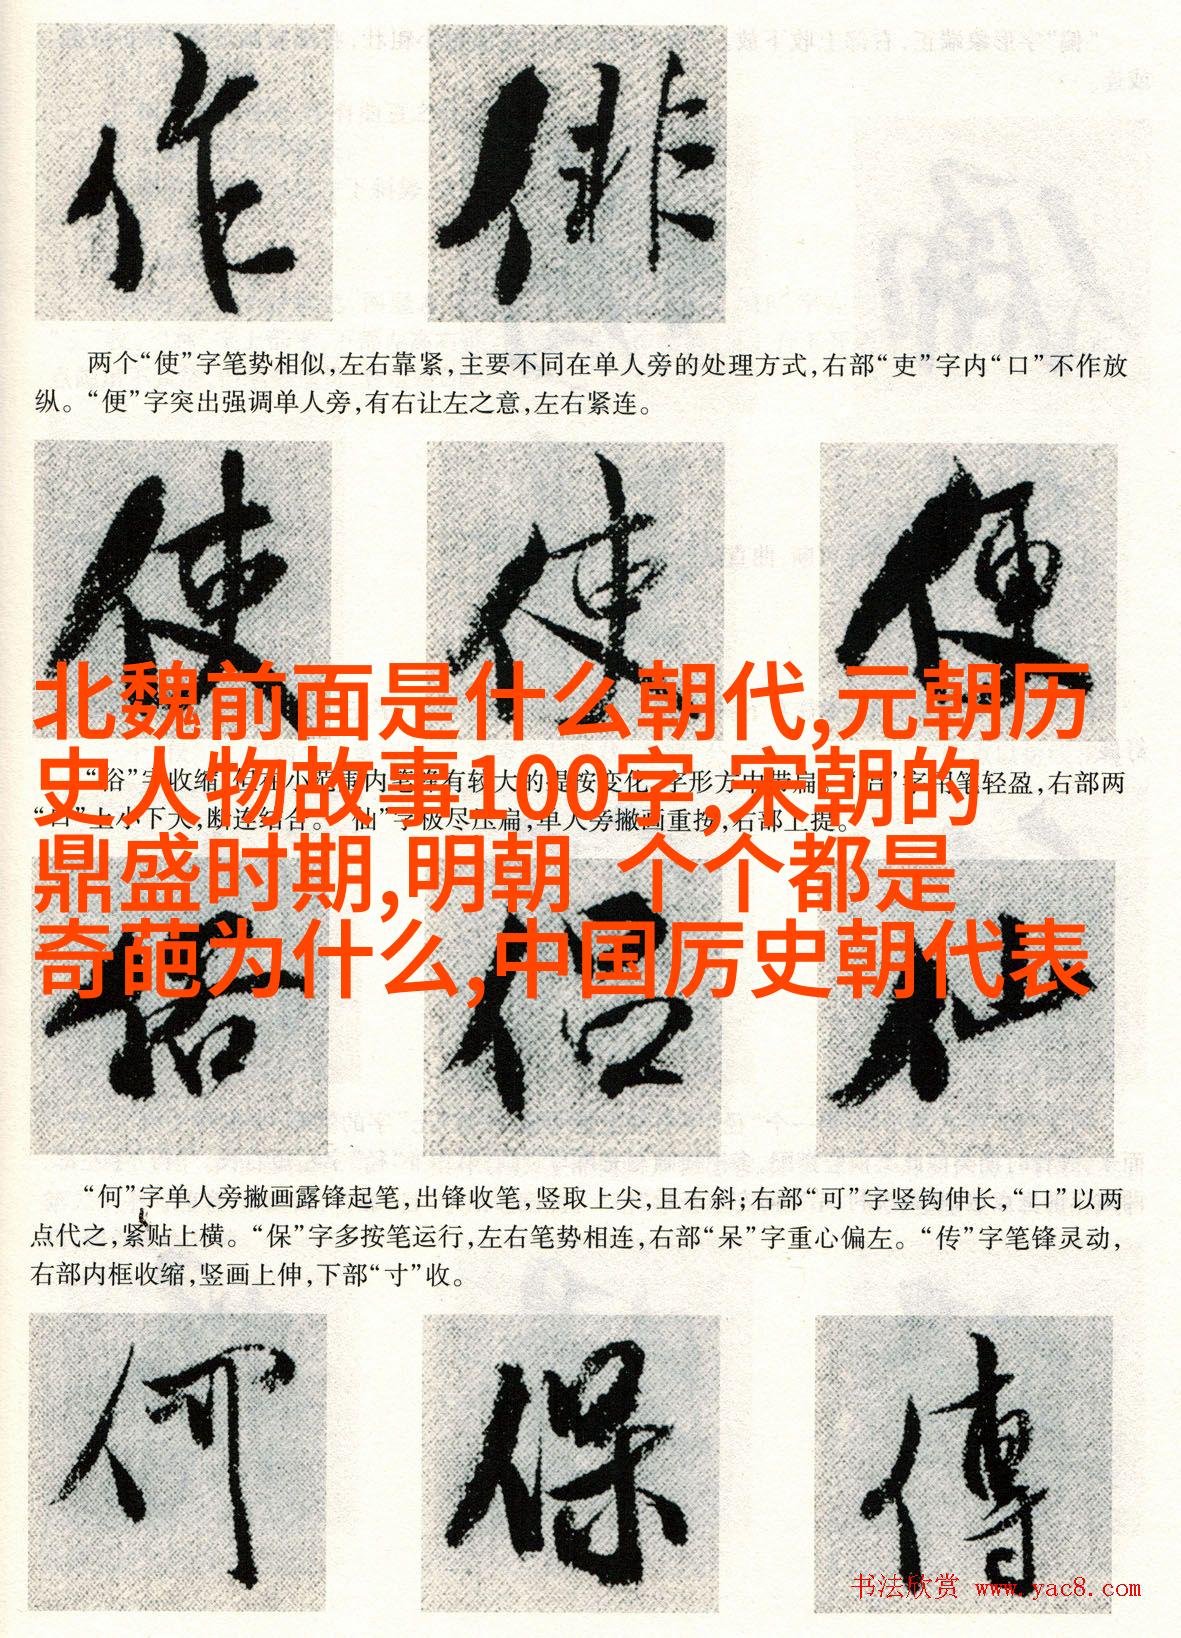 作 俳
两个“使”字笔势相似,左右靠紧,主要不同在单人旁的处理方式,右部“吏”字内“口”不作放
纵。“便”字突出强调单人旁,有右让左之意,左右紧连。
使 使 便
北魏前面是什么朝代,元朝历
史人物故事100字,宋朝的
鼎盛时期,明朝 个个都是
奇葩为什么,中国厉史朝代表
“俗”字收缩,但在小范围内笔锋有较大的提按变化,字形方中带扁。 字 笔轻盈,右部两
“口”上小下大,断连结合。“仙”字极尽压扁,单人旁撇画重按,右部上提。
俗 侣 仙
“何”字单人旁撇画露锋起笔,出锋收笔,竖取上尖,且右斜;右部“可”字竖钩伸长,“口”以两
点代之,紧贴上横。“保”字多按笔运行,左右笔势相连,右部“呆”字重心偏左。“传”字笔锋灵动,
右部内框收缩,竖画上伸,下部“寸”收。
何 保 傳
书法欣赏 www.yac8.com